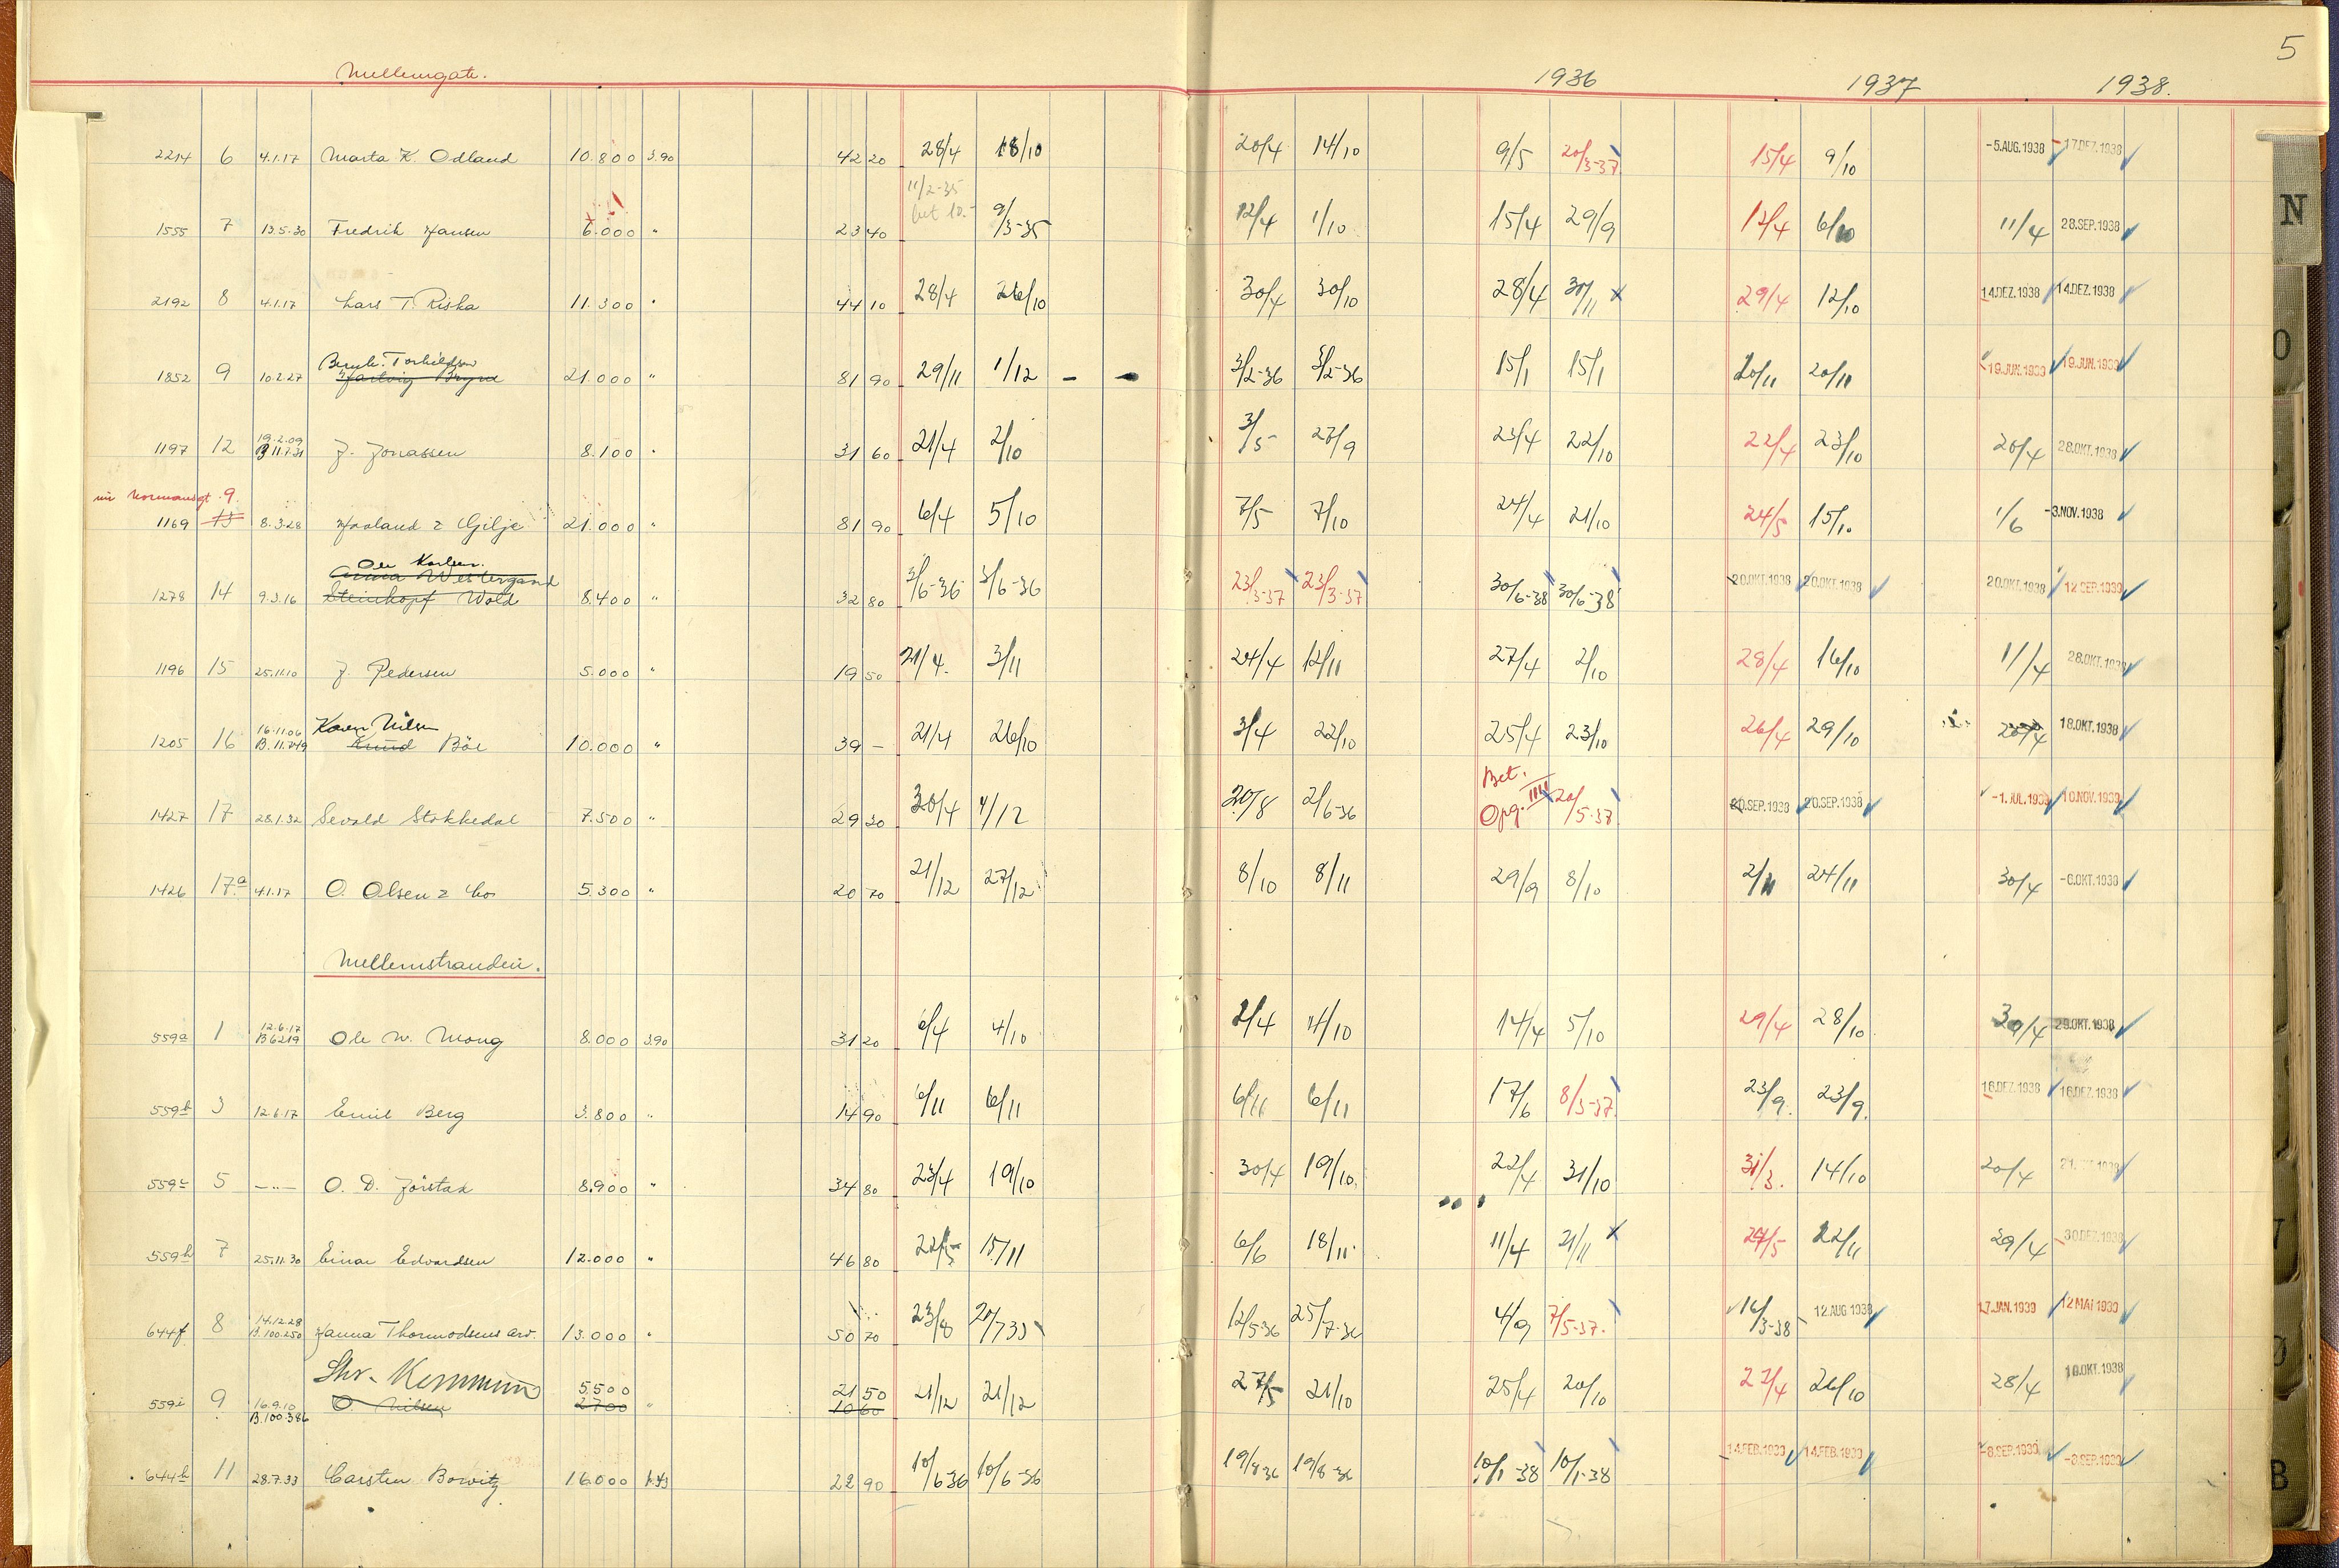 5
Mellemgate. 1936 1937 1938.
2214 6 4.1.17 Marta K. Odland 10.800 3.90 42 20 28/4 18/10 20/4 14/10 9/5 20/3-37 15/4 9/10 -5.AUG.1938 -17.DEZ.1938
11/2-35
bet 10.-
1555 7 13.5.30 Fredrik Hansen 6.000 " 23 40 9/3-35 12/4 1/10 15/4 29/9 12/4 6/10 11/4 28.SEP.1938
N
2192 8 4.1.17 Lars T. Riska 11.300 " 44 10 28/4 26/10 30/4 30/10 28/4 30/11 x 29/4 12/10 14.DEZ.1938 14.DEZ.1938
O
Bernh. Torkildsen
1852 9 10.2.27 Hartvig Bryne 21.000 " 81 90 29/11 1/12 - - 3/2-36 3/2-36 15/1 15/1 20/11 20/11 19.JUN.1939 19.JUN.1939
19.2.09
1197 12 B 11.7.31 J. Jonassen 8.100 " 31 60 21/4 2/10 3/5 27/9 23/4 22/10 22/4 23/10 20/4 28.OKT.1938
nu Normansgt. 9.
1169 13 8.3.28 Haaland & Gilje 21.000 " 81 90 6/4 5/10 7/5 7/10 24/4 21/10 24/5 15/10 1/6 -3.NOV.1938
Ole Karlsen.
Anna Westergaard
1278 14 9.3.16 Steinkopf Wold 8.400 " 32 80 3/6-36 3/6-36 23/3-37 23/3-37 30/6-38 30/6-38 20.OKT.1938 20.OKT.1938 20.OKT.1938 12 SEP.1939
1196 15 25.11.10 J. Pedersen 5.000 " 19 50 21/4. 3/11 24/4 12/11 27/4 2/10 28/4 16/10 11/4 28.OKT.1938
16.11.06 Karen Nilsen
1205 16 B. 11.749 Knud Böe 10.000 " 39 - 21/4 26/10 3/4 22/10 25/4 23/10 26/4 29/10 18.OKT.1938
Bet.
1427 17 28.1.32 Sevald Stokkedal 7.500 " 29 30 30/4 4/12 20/8 2/6-36 Opg. 20/5-37 20.SEP.1938 20.SEP.1938 -1.JUL.1939 10.NOV.1939
1426 17a 4.1.17 O. Olsen & Co 5.300 " 20 70 21/12 27/12 8/10 8/11 29/9 8/10 2/11 24/11 30/4 -6.OKT.1938
Mellemstranden.
12.6.17
559a 1 B 6219 Ole W. Mong 8.000 3.90 31 20 6/4 4/10 2/4 4/10 14/4 5/10 29/4 28/10 30/4 29.OKT.1938
559b 3 12.6.17 Emil Berg 3.800 " 14 90 6/11 6/11 6/11 6/11 17/6 8/3-37 23/9. 23/9. 16.DEZ.1938 16.DEZ.1938
559c 5 -"- O. D. Jörstad 8.900 " 34 80 23/4 19/10 30/4 19/10. 22/4 31/10 31/3. 14/10 20/4
559h 7 25.11.30 Einar Edvardsen 12.000 " 46 80 22/5 15/11 6/6 18/11 11/4 21/11 x 24/5 22/11 29/4 -30 DEZ.1938
14.12.28
644f 8 B.100.250 Hanna Thormodsens arv. 13.000 " 50 70 23/8 20/7 35 12/5-36 25/7-36 4/9 7/5-37. 16/3-38 12.AUG 1938 17.JAN.1939 12 MAI 1939
Ø
Shv. Kommune 5.500 21 50
559i 9 16.9.10 O. Nilsen 2700 " 10 60 21/12 21/12 27/5 21/10 25/4 20/10 27/4 26/10 28/4 18.OKT.1938
B.100.386
644h 11 28.7.33 Carsten Borvitz 16.000 1.43 22 90 10/6-36 10/6-36 19/8-36 19/8-36 10/1-38 10/1-38 14.FEB.1939 14.FEB.1939 -8.SEP.1939 -8.SEP.1939
B